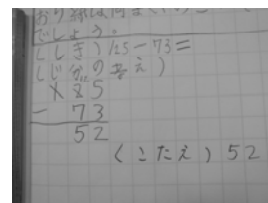 おり紙は何まい
でしょう。
(しき) 125-73=
(じぶんの考え)
125
- 73
52
(こたえ) 52